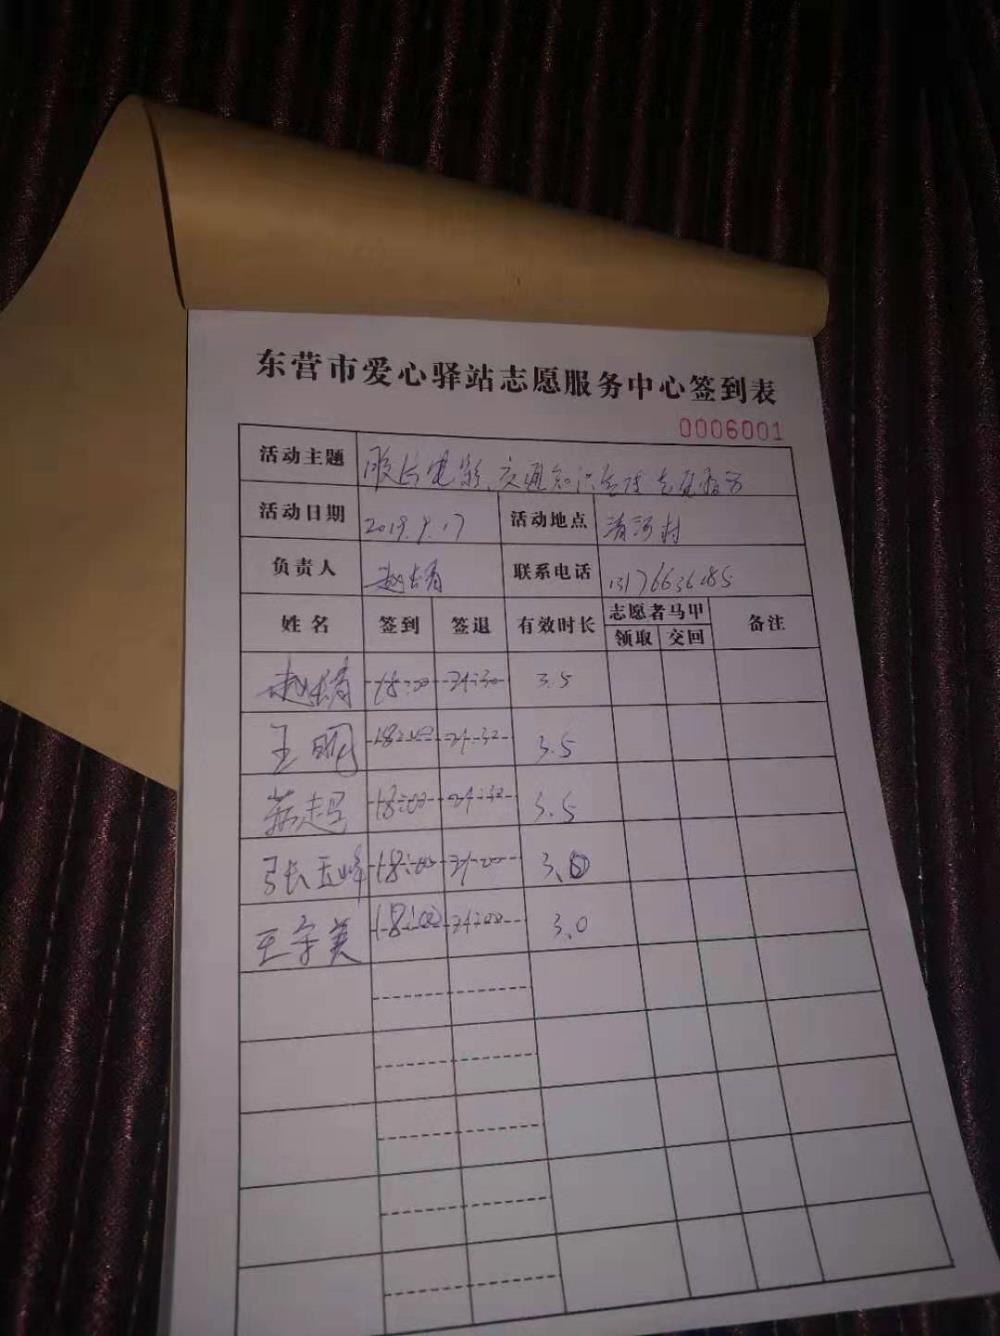 东营市爱心驿站志愿服务中心签到表
0006001
活动主题 电影、交通知识宣传志愿服务
活动日期 2019.9.17 活动地点 清河村
负责人 联系电话
姓名 签到 签退 有效时长 志愿者马甲 备注
领取 交回
18:00 21:30 3.5
王明 18:00 21:30 3.5
18:00 21:30 3.5
张玉峰 18:00 21:00 3.0
王字美 18:00 21:00 3.0